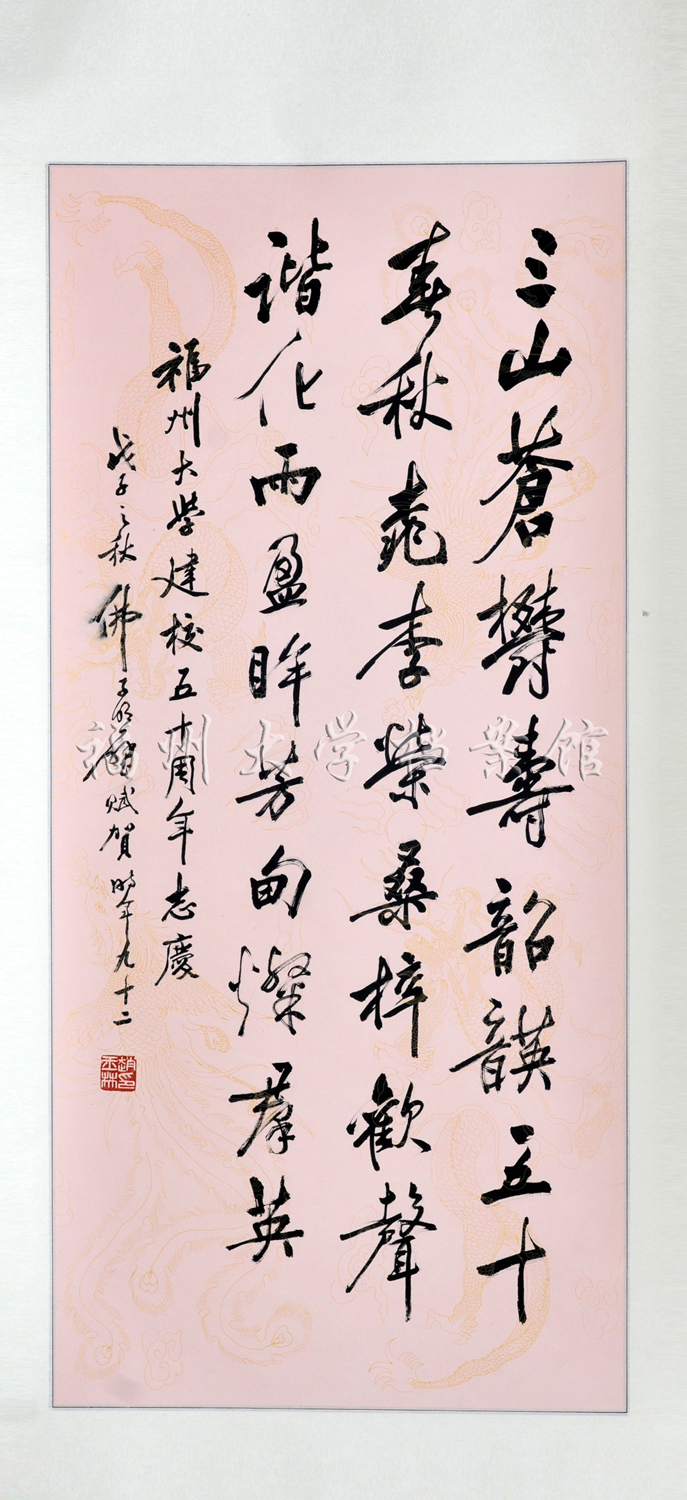 三山蒼欝壽韶韺五十
春秋桃李榮桑梓歡聲
諧化雨盈眸芳甸燦羣英
福州大學建校五十周年志慶
戊子之秋佛子 賦賀時年九十二
趙玉林印
福州大学档案馆